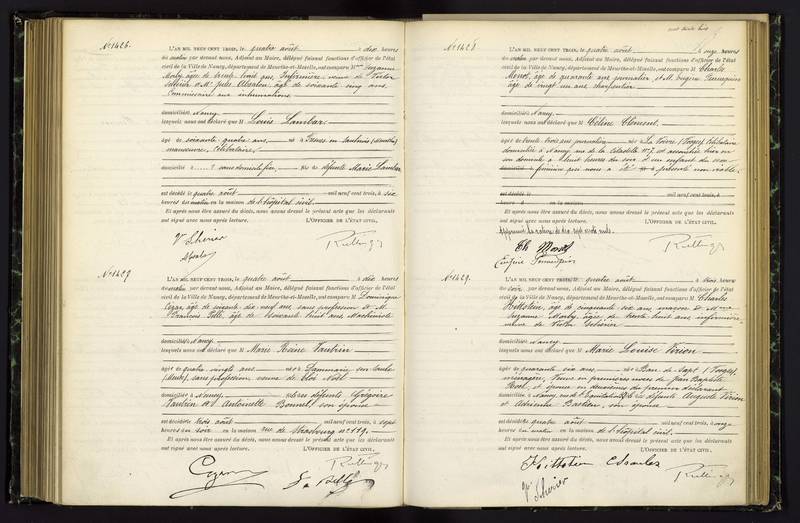 N° 1426.
L'AN MIL NEUF CENT TROIS, le quatre août à dix heures
du matin par devant nous, Adjoint au Maire, délégué faisant fonctions d'officier de l'état
civil de la Ville de Nancy, département de Meurthe-et-Moselle, ont comparu Mme Suzanne
Morly, âgée de trente huit ans, Infirmière, veuve de Victor
Scherier et Mr Jules Absalon, âgé de soixante cinq ans,
Commissaire aux inhumations
domiciliés à Nancy
lesquels nous ont déclaré que M Louis Lambar
âgé de soixante quatre ans, né à Fresnes en Saulnois (Meurthe)
manœuvre, célibataire,
domicilié à ....? sans domicile fixe, fils de défunte Marie Lambar
est décédé le quatre août mil neuf cent trois, à six
heures du matin en la maison de l'hôpital civil.
Et après nous être assuré du décès, nous avons dressé le présent acte que les déclarants
ont signé avec nous après lecture. L'OFFICIER DE L'ÉTAT CIVIL.
Ve Scherier
N° 1427
L'AN MIL NEUF CENT TROIS, le quatre août à dix heures
du matin par devant nous, Adjoint au Maire, délégué faisant fonctions d'officier de l'état
civil de la Ville de Nancy, département de Meurthe-et-Moselle, ont comparu M Dominique
âgé de soixante dix neuf ans, sans profession et M.
François âgé de soixante huit ans, Machiniste
domiciliés à Nancy
lesquels nous ont déclaré que M Marie Reine Vautrin
âgée de quatre vingts ans née à Dammarie sur Saulx
(Meuse), sans profession veuve de Eloi Noël
domiciliée à Nancy fille des défunts Grégoire
Vautrin et Antoinette Bonnet, son épouse
est décédée le trois août mil neuf cent trois, à sept
heures du soir en la maison rue de Strasbourg n° 119.
Et après nous être assuré du décès, nous avons dressé le présent acte que les déclarants
ont signé avec nous après lecture. L'OFFICIER DE L'ÉTAT CIVIL.
N° 1428
L'AN MIL NEUF CENT TROIS, le quatre août à onze heures
du matin par devant nous, Adjoint au Maire, délégué faisant fonctions d'officier de l'état
civil de la Ville de Nancy, département de Meurthe-et-Moselle, ont comparu M Charles
Monot, âgé de quarante ans journalier et M. Eugène
âgé de vingt un ans charpentier
domiciliés à Nancy.
lesquels nous ont déclaré que M Céline Clément,
âgée de trente trois ans journalière née à La Voivre (Vosges) célibataire
domiciliée à Nancy rue de la Citadelle est accouchée hier en
son domicile à huit heures du soir d'un enfant du sexe
féminin qui nous a été présenté non viable.
est décédé le mil neuf cent trois, à
heures en la maison
Et après nous être assuré du décès, nous avons dressé le présent acte que les déclarants
ont signé avec nous après lecture. L'OFFICIER DE L'ÉTAT CIVIL.
Approuvé la rature de dix sept mots nuls.
Ch Monot
Eugène
N° 1429.
L'AN MIL NEUF CENT TROIS, le quatre août à trois heures
du soir, par devant nous, Adjoint au Maire, délégué faisant fonctions d'officier de l'état
civil de la Ville de Nancy, département de Meurthe-et-Moselle, ont comparu M Charles
Hittstein, âgé de cinquante six ans, maçon et Mme
Suzanne Morly, âgée de trente huit ans, infirmière,
veuve de Victor Scherier
domiciliés à Nancy
lesquels nous ont déclaré que M Marie Louise Virion
âgée de quarante six ans née à Ban de Sapt (Vosges)
ménagère, Veuve en premières noces de Jean Baptiste
et épouse en deuxièmes du premier déclarant
domiciliée à Nancy, fille des défunts Auguste Virion
et Adrienne Bastien, son épouse
est décédée le quatre août mil neuf cent trois, à onze
heures du matin en la maison de l'hôpital civil.
Et après nous être assuré du décès, nous avons dressé le présent acte que les déclarants
ont signé avec nous après lecture. L'OFFICIER DE L'ÉTAT CIVIL.
Hittstein Charles
Ve Scherier